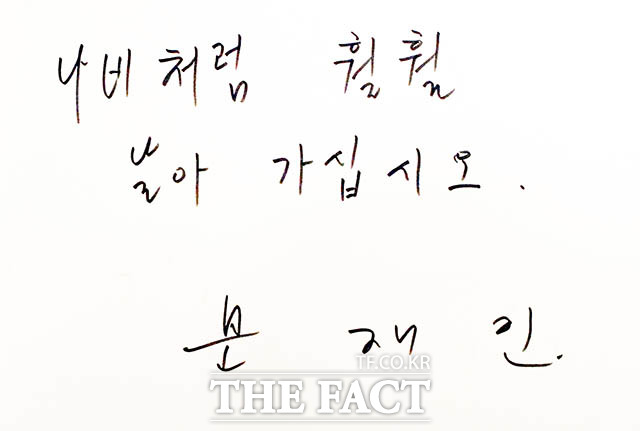 나비처럼 훨훨
날아 가십시오.
문 재 인.
TF.CO.KR
THE FACT